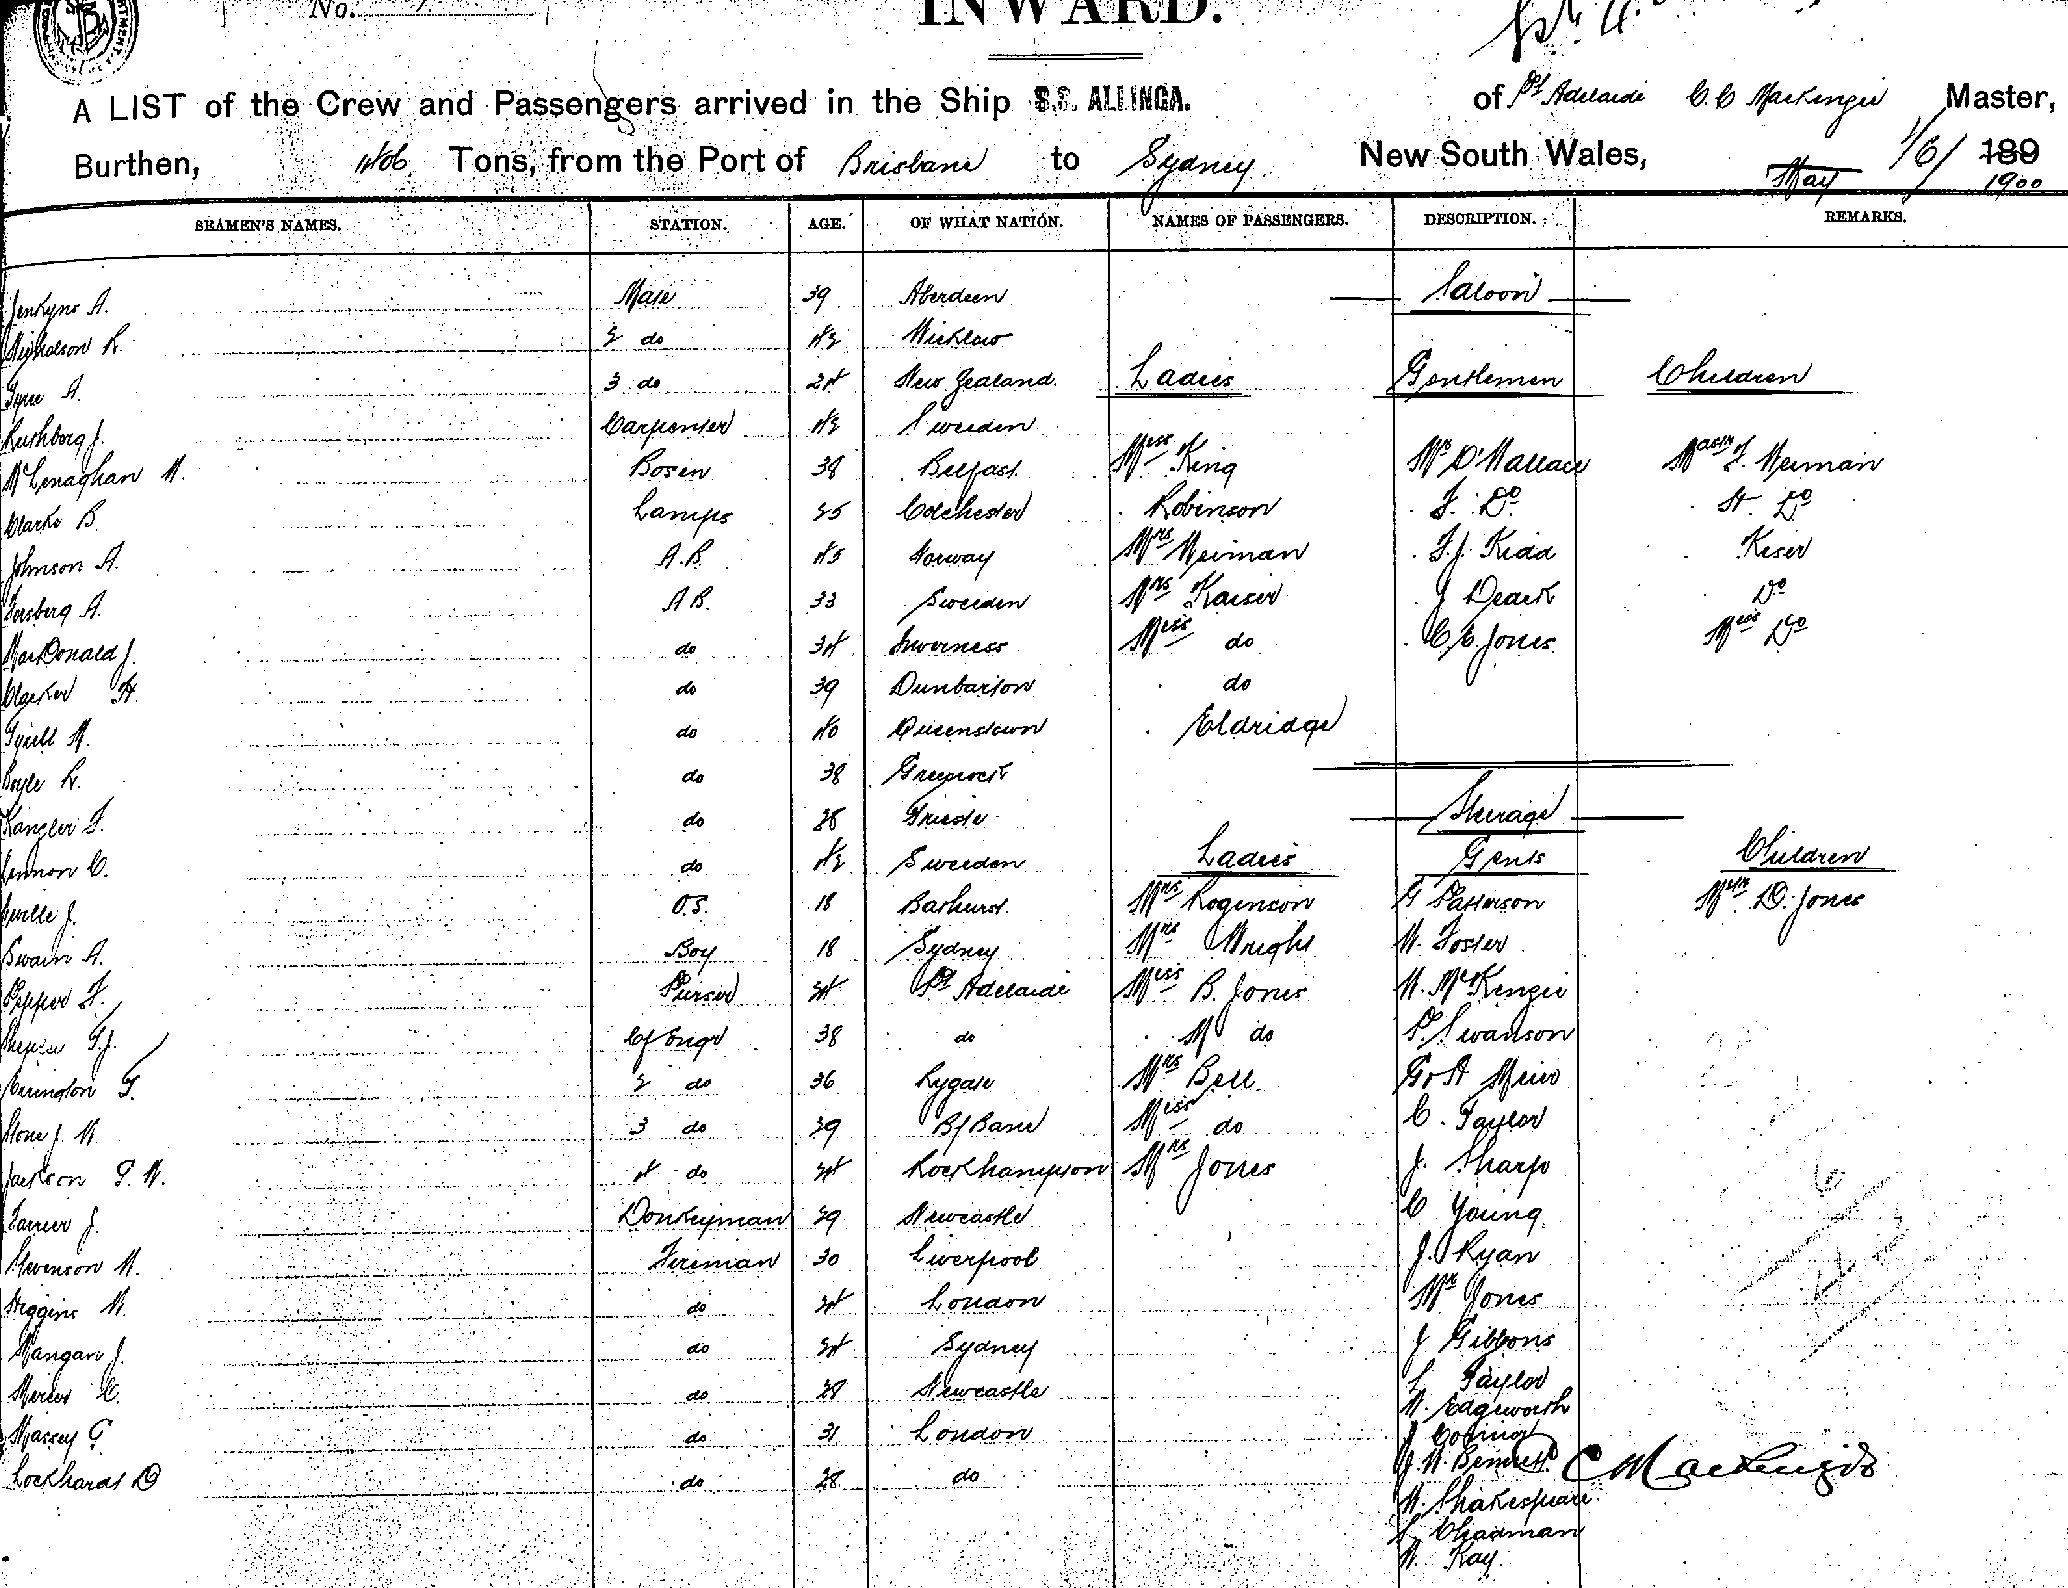 No.
INWARD.
A LIST of the Crew and Passengers arrived in the Ship S.S. ALLINGA. of Pt Adelaide C. C Mackenzie Master,
Burthen, Tons, from the Port of Brisbane to Sydney New South Wales, May 1/6/ 189 1900
SEAMEN'S NAMES. STATION. AGE. OF WHAT NATION. NAMES OF PASSENGERS. DESCRIPTION. REMARKS.
Jenkyns A. Mate 39 Aberdeen Saloon
Nicholson R. 2 do 42 Wicklow
A. 3 do 24 New Zealand. Ladies Gentlemen Children
J. Carpenter 42 Sweden
McLenaghan W. Bosun 38 Belfast Miss King Mr D Wallace Mastr F. Neiman
Clarke B. Lamps 25 Colchester Robinson F. Do H. Do
Johnson A. A.B. 45 Norway Mrs Neiman F.J. Kidd Keser
Forsberg A. A B. 33 Sweden Mrs Kaiser J Do
MacDonald J. do 34 Inverness Miss do C E Jones Miss Do
H. do 39 Dunbarton do
Tyrell M. do 40 Queenstown Eldridge
Boyle R. do 38 Greenock
F. do 28 Trieste Steerage
Lennon C. do 42 Sweden Ladies Gents Children
J. O.S. 18 Bathurst. Mrs Rogenson G Patterson Mstr D. Jones
Swain A. Boy 18 Sydney Mrs Wright W. Foster
Pepper F. Purser 24 Pt Adelaide Miss B. Jones W. McKenzie
T.J. Cf Engr 38 do M do P. Swanson
T. 2 do 36 Mrs Bell
Stone J. W. 3 do 29 Miss do C. Taylor
Jackson T. W. 4 do 24 Rockhampton Mrs Jones J. Sharp
Farrier J. Donkeyman 29 Newcastle C Young
Stevenson W. Fireman 30 Liverpool J. Ryan
Higgins W. do 24 London Mr Jones
Mangan J. do 24 Sydney J Gibbons
Mercer C. do 28 Newcastle L Taylor
W. Edgeworth
Massey G. do 31 London
J. W. Bennett C Mackenzie
Lockhardt D do 28 do
W. Shakespeare.
L Chadman
W. Kay.